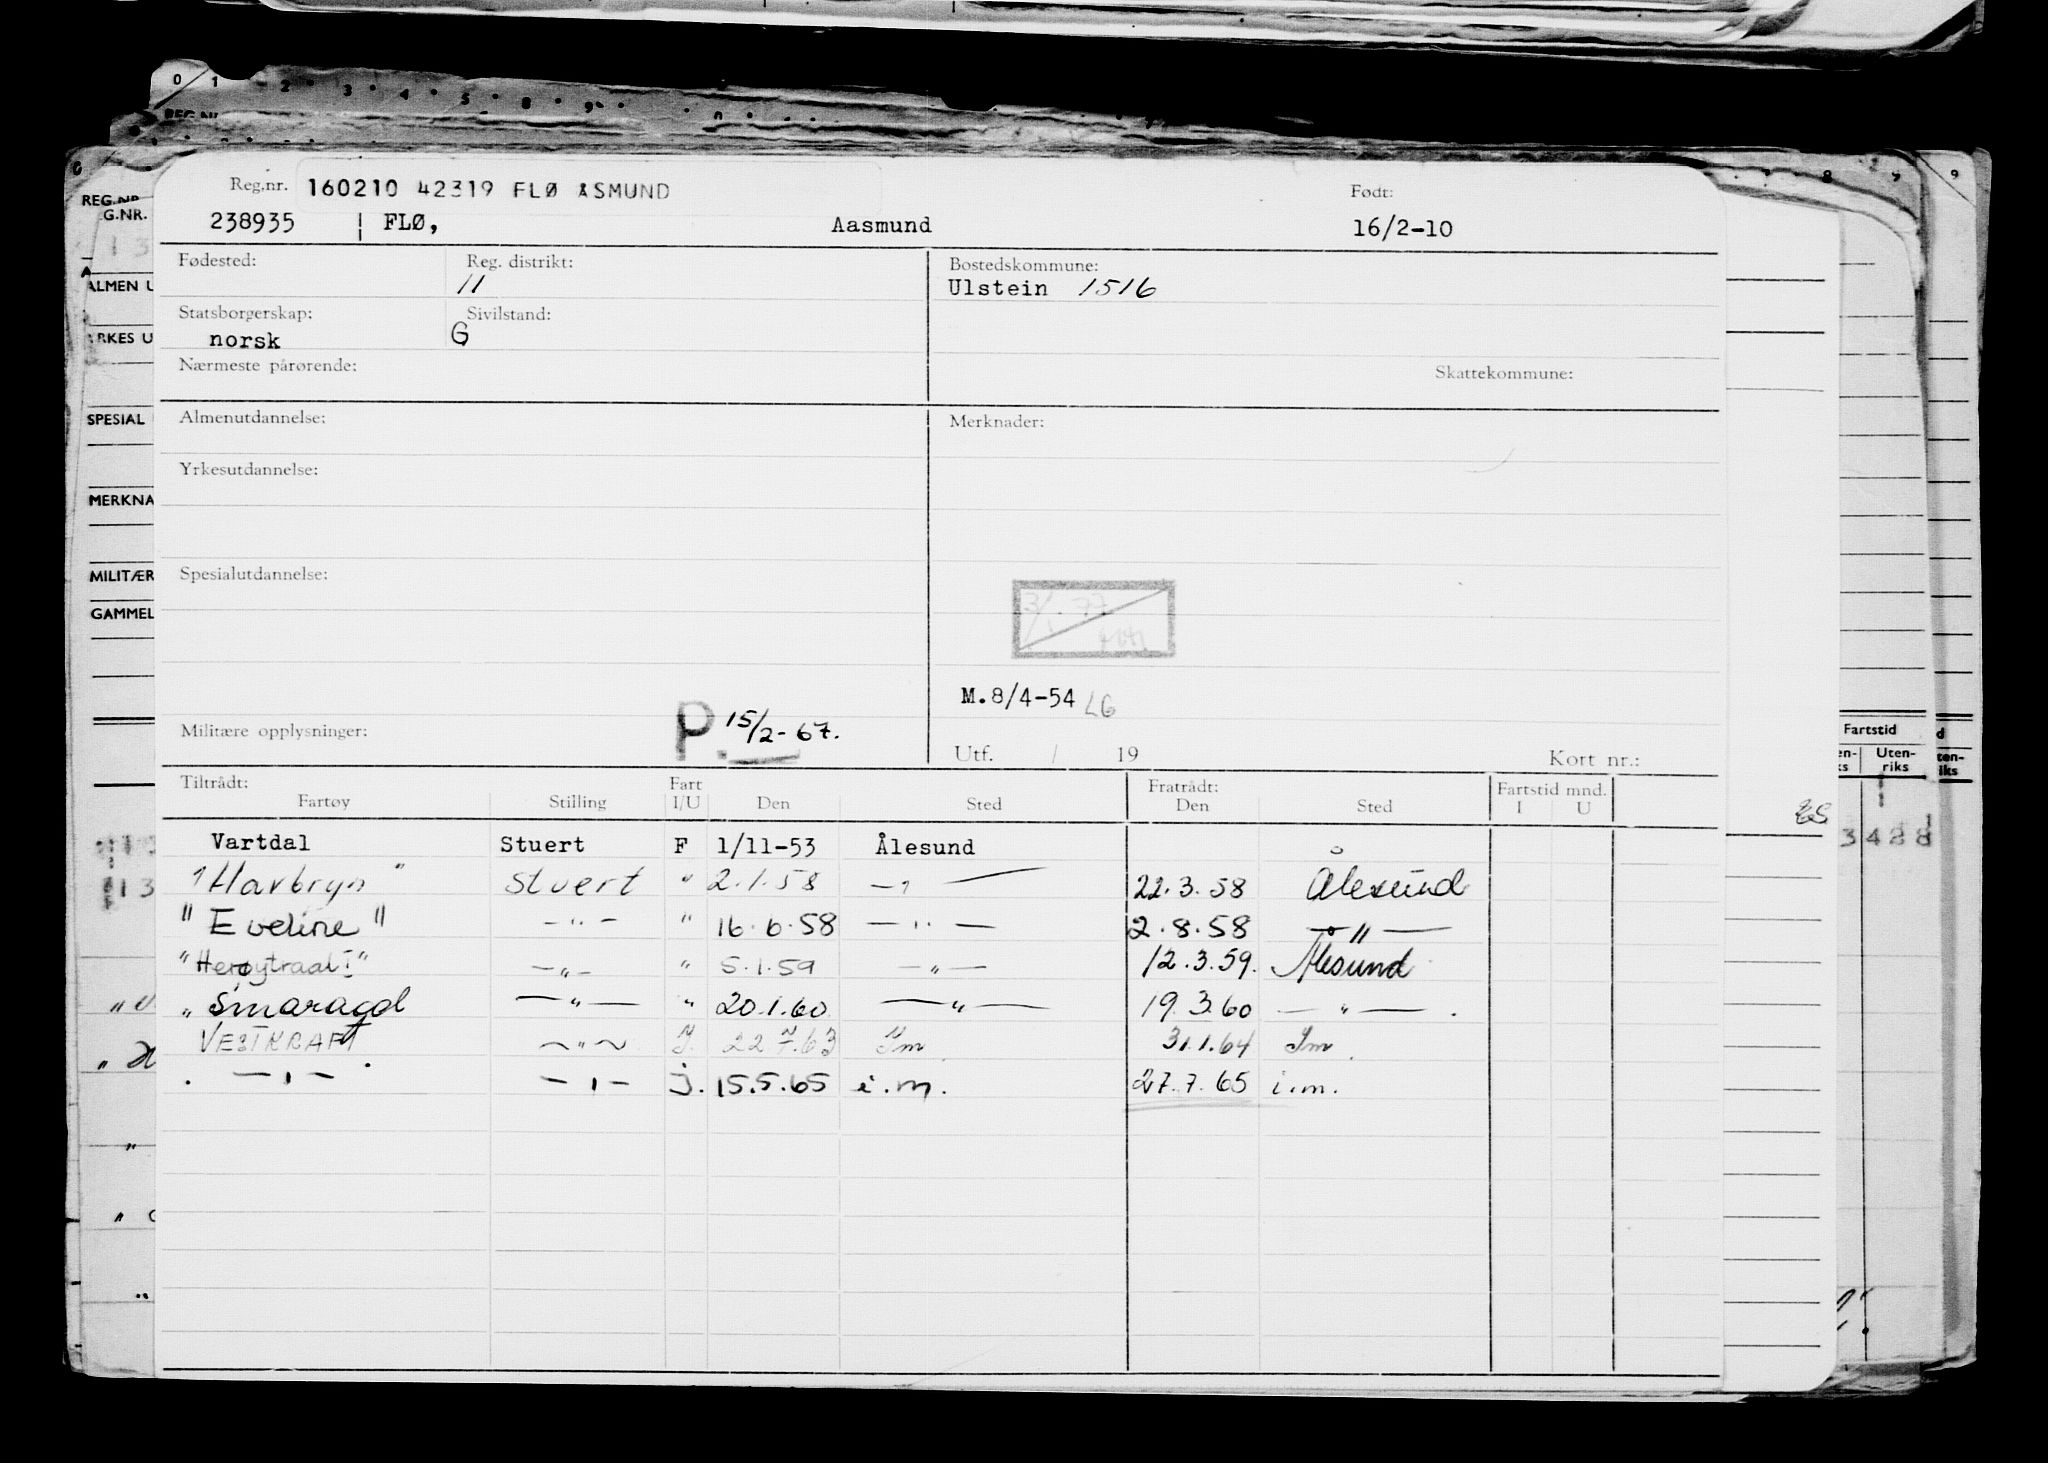 0 1 2 3 4 5 8 9
REG.NR.
G.NR.
ALMEN U
RKES U
SPESIAL
MERKNA
MILITÆR
GAMMEL
Reg.nr. 160210 42319 FLØ ÅSMUND Født:
238935 FLØ, Aasmund 16/2-10
Fødested: Reg. distrikt: Bostedskommune:
11 Ulstein 1516
Statsborgerskap: Sivilstand:
norsk G
Nærmeste pårørende: Skattekommune:
Almenutdannelse: Merknader:
Yrkesutdannelse:
Spesialutdannelse:
M.8/4-54 LG
Militære opplysninger: P. 15/2-67.
Utf. / 19 Kort nr.:
Tiltrådt: Fart Fratrådt: Fartstid mnd.
Fartøy Stilling I/U Den Sted Den Sted I U
Vartdal Stuert F 1/11-53 Ålesund
"Havbryn" Stuert " 2.1.58 — " — 22.3.58 Ålesund
"Eveline" — " — " 16.6.58 — " — 2.8.58 — " —
"Herøytraal I" — " — " 5.1.59 — " — 12.3.59. Ålesund
" Smaragd — " — " 20.1.60 — " — 19.3.60 — " — .
VESTKRAFT — " — J. 22.7.63 Im 31.1.64 Im.
— " — — " — j. 15.5.65 i.m. 27.7.65 i.m.
Fartstid
Uten-
riks
3428